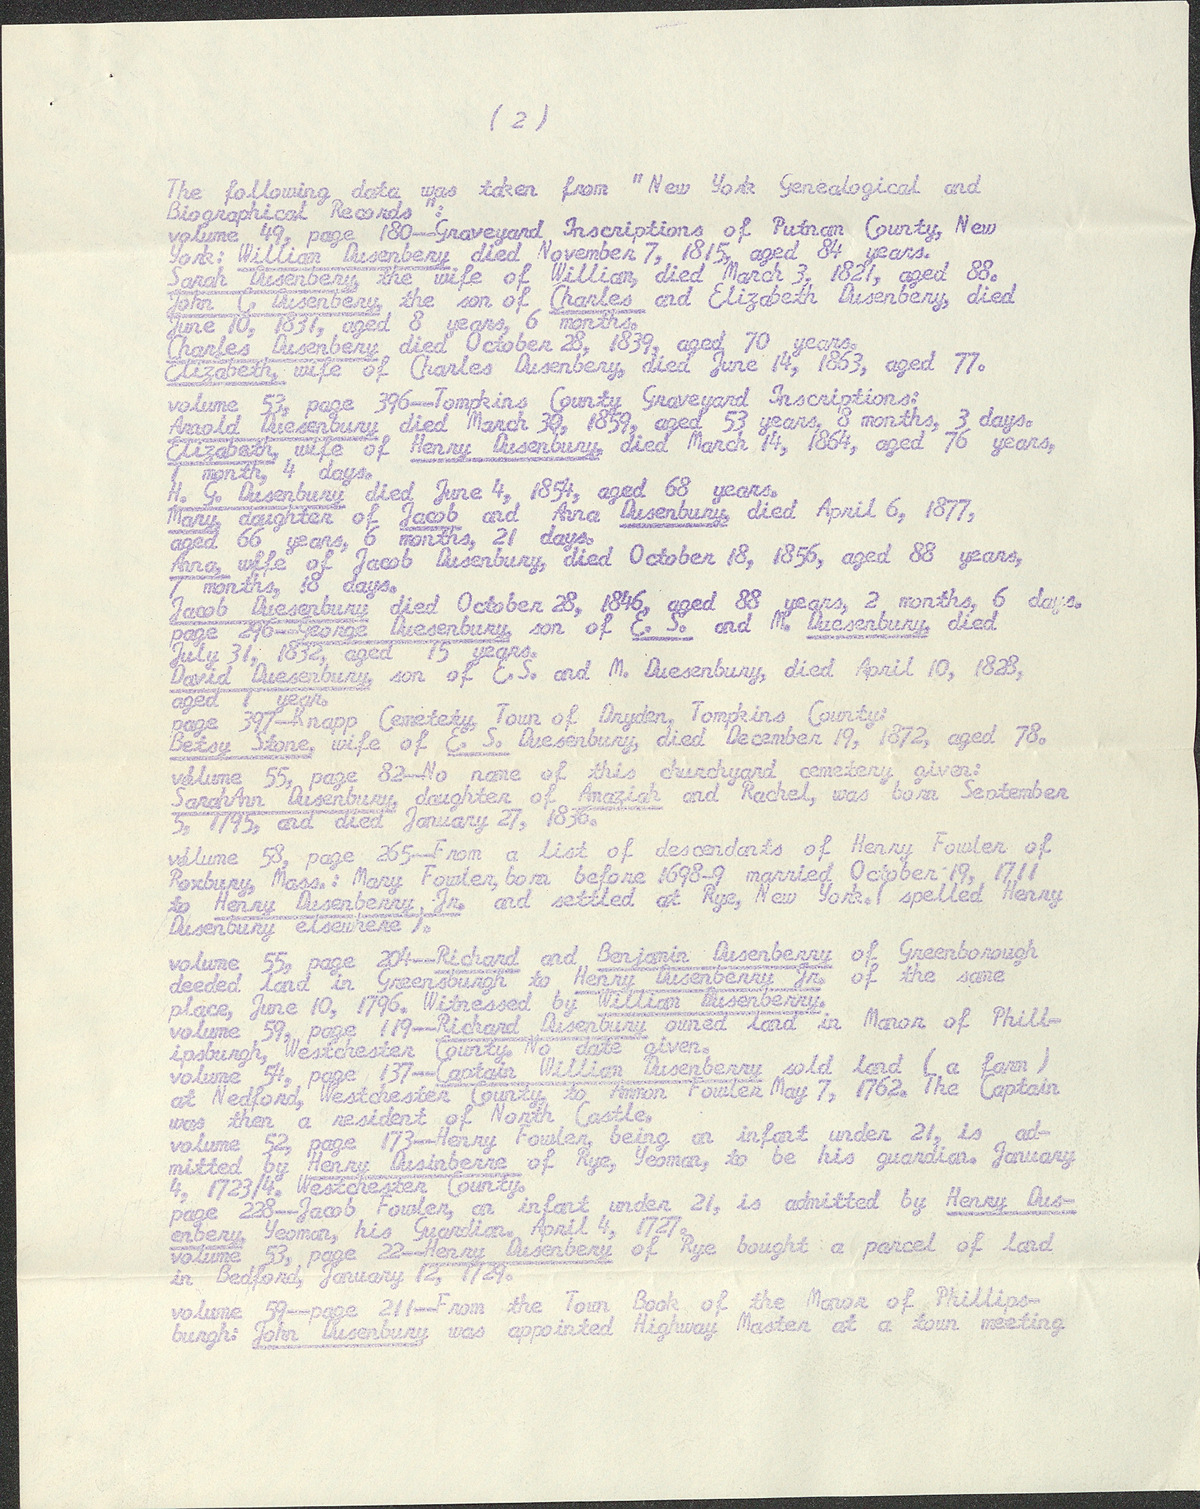 ( 2 )
The following data was taken from "New York Genealogical and
Biographical Records":
volume 49, page 180--Graveyard Inscriptions of Putnam County, New
York: William Dusenbery died November 7, 1815, aged 84 years.
Sarah Dusenbery, the wife of William, died March 3, 1821, aged 88.
John C. Dusenbery, the son of Charles and Elizabeth Dusenbery, died
June 10, 1831, aged 8 years, 6 months.
Charles Dusenbery died October 28, 1839, aged 70 years.
Elizabeth, wife of Charles Dusenbery, died June 14, 1863, aged 77.
volume 53, page 396--Tompkins County Graveyard Inscriptions:
Arnold Duesenbury died March 30, 1859, aged 53 years, 8 months, 3 days.
Elizabeth, wife of Henry Dusenbury, died March 14, 1864, aged 76 years,
1 month, 4 days.
H. G. Dusenbury died June 4, 1854, aged 68 years.
Mary, daughter of Jacob and Anna Dusenbury, died April 6, 1877,
aged 66 years, 6 months, 21 days.
Anna, wife of Jacob Dusenbury, died October 18, 1856, aged 88 years,
7 months, 18 days.
Jacob Duesenbury died October 28, 1846, aged 88 years, 2 months, 6 days.
page 296--George Duesenbury, son of E. S. and M. Duesenbury, died
July 31, 1832, aged 15 years.
David Duesenbury, son of E.S. and M. Duesenbury, died April 10, 1828,
aged 1 year.
page 397--Knapp Cemetery, Town of Dryden, Tompkins County:
Betsy Stone, wife of E. S. Duesenbury, died December 19, 1872, aged 78.
volume 55, page 82--No name of this churchyard cemetery given:
SarahAnn Dusenbury, daughter of Amaziah and Rachel, was born September
5, 1795, and died January 27, 1836.
volume 58, page 265--From a list of descendants of Henry Fowler of
Roxbury, Mass.: Mary Fowler, born before 1698-9 married October 19, 1711
to Henry Dusenberry Jr. and settled at Rye, New York. ( spelled Henry
Dusenbury elsewhere ).
volume 55, page 204--Richard and Benjamin Dusenberry of Greenborough
deeded land in Greensburgh to Henry Dusenberry Jr. of the same
place, June 10, 1796. Witnessed by William Dusenberry.
volume 59, page 119--Richard Dusenbury owned land in Manor of Phill-
ipsburgh, Westchester County. No date given.
volume 54, page 137--Captain William Dusenberry sold land ( a farm )
at Nedford, Westchester County, to Ammon Fowler May 7, 1762. The Captain
was then a resident of North Castle.
volume 52, page 173--Henry Fowler, being an infant under 21, is ad-
mitted by Henry Dusinberre of Rye, Yeoman, to be his guardian. January
4, 1723/4. Westchester County.
page 228--Jacob Fowler, an infant under 21, is admitted by Henry Dus-
enbery, Yeoman, his Guardian. April 4, 1727.
volume 53, page 22--Henry Dusenbery of Rye bought a parcel of land
in Bedford, January 12, 1729.
volume 59--page 211--From the Town Book of the Manor of Phillips-
burgh: John Dusenbury was appointed Highway Master at a town meeting